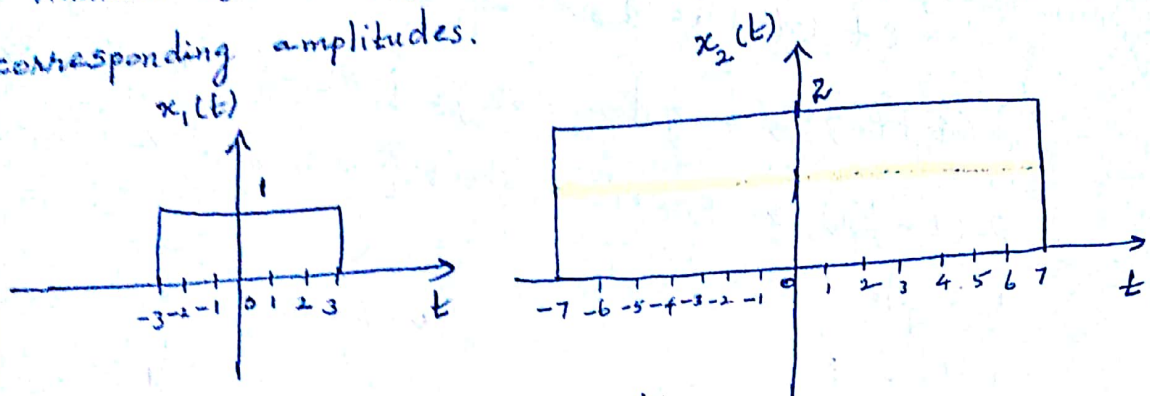 corresponding amplitudes.
x₁(t)
1
-3 -2 -1 0 1 2 3
t
x₂(t)
2
-7 -6 -5 -4 -3 -2 -1 0 1 2 3 4 5 6 7
t